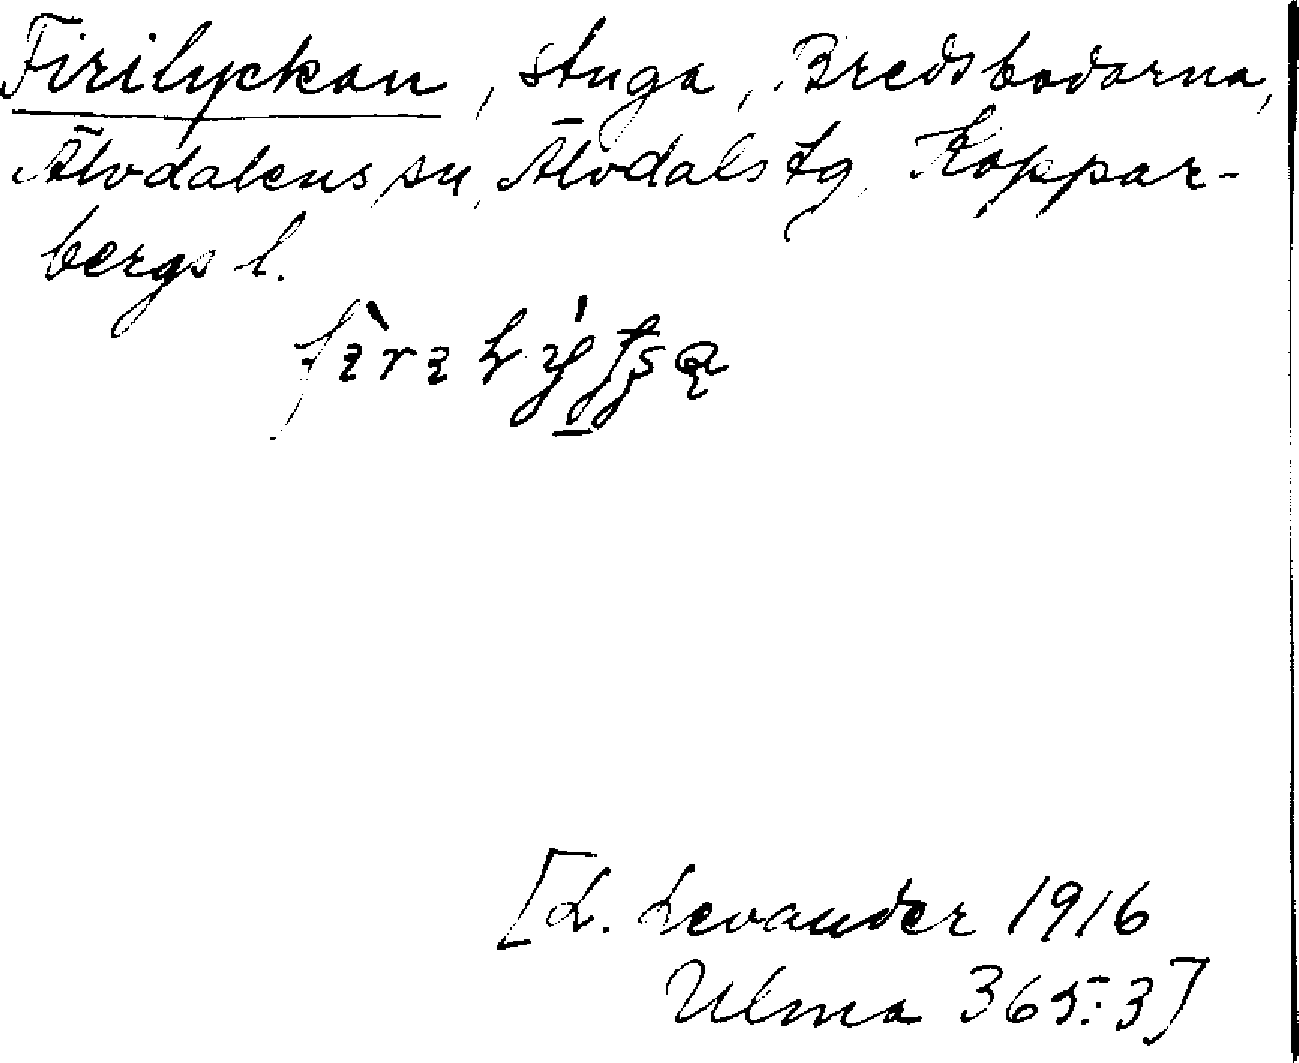 Firilyckan, stuga, Bredsbodarna,
Älvdalens sn, Älvdals tg, Koppar-
bergs l.
[L. Levander 1916
Ulma 365:3]